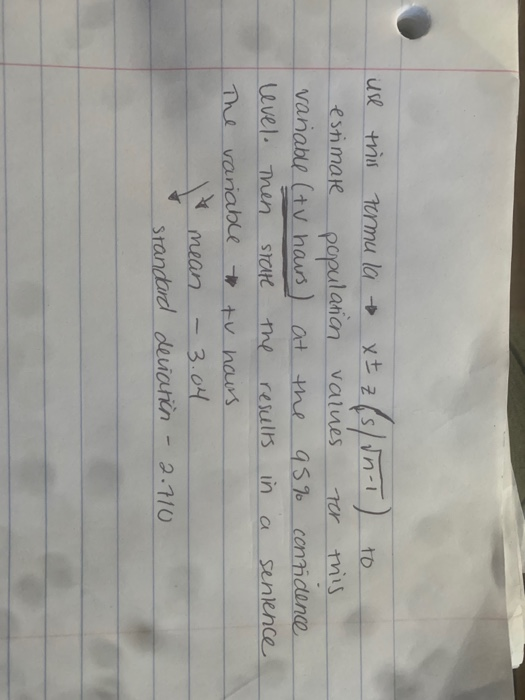 use this formula → x ± z (s/√n-1) to
estimate population values for this
variable (tv hours) at the 95% confidence
level. Then state the results in a sentence
The variable → tv hours
↳ mean - 3.04
↳ standard deviation - 2.710